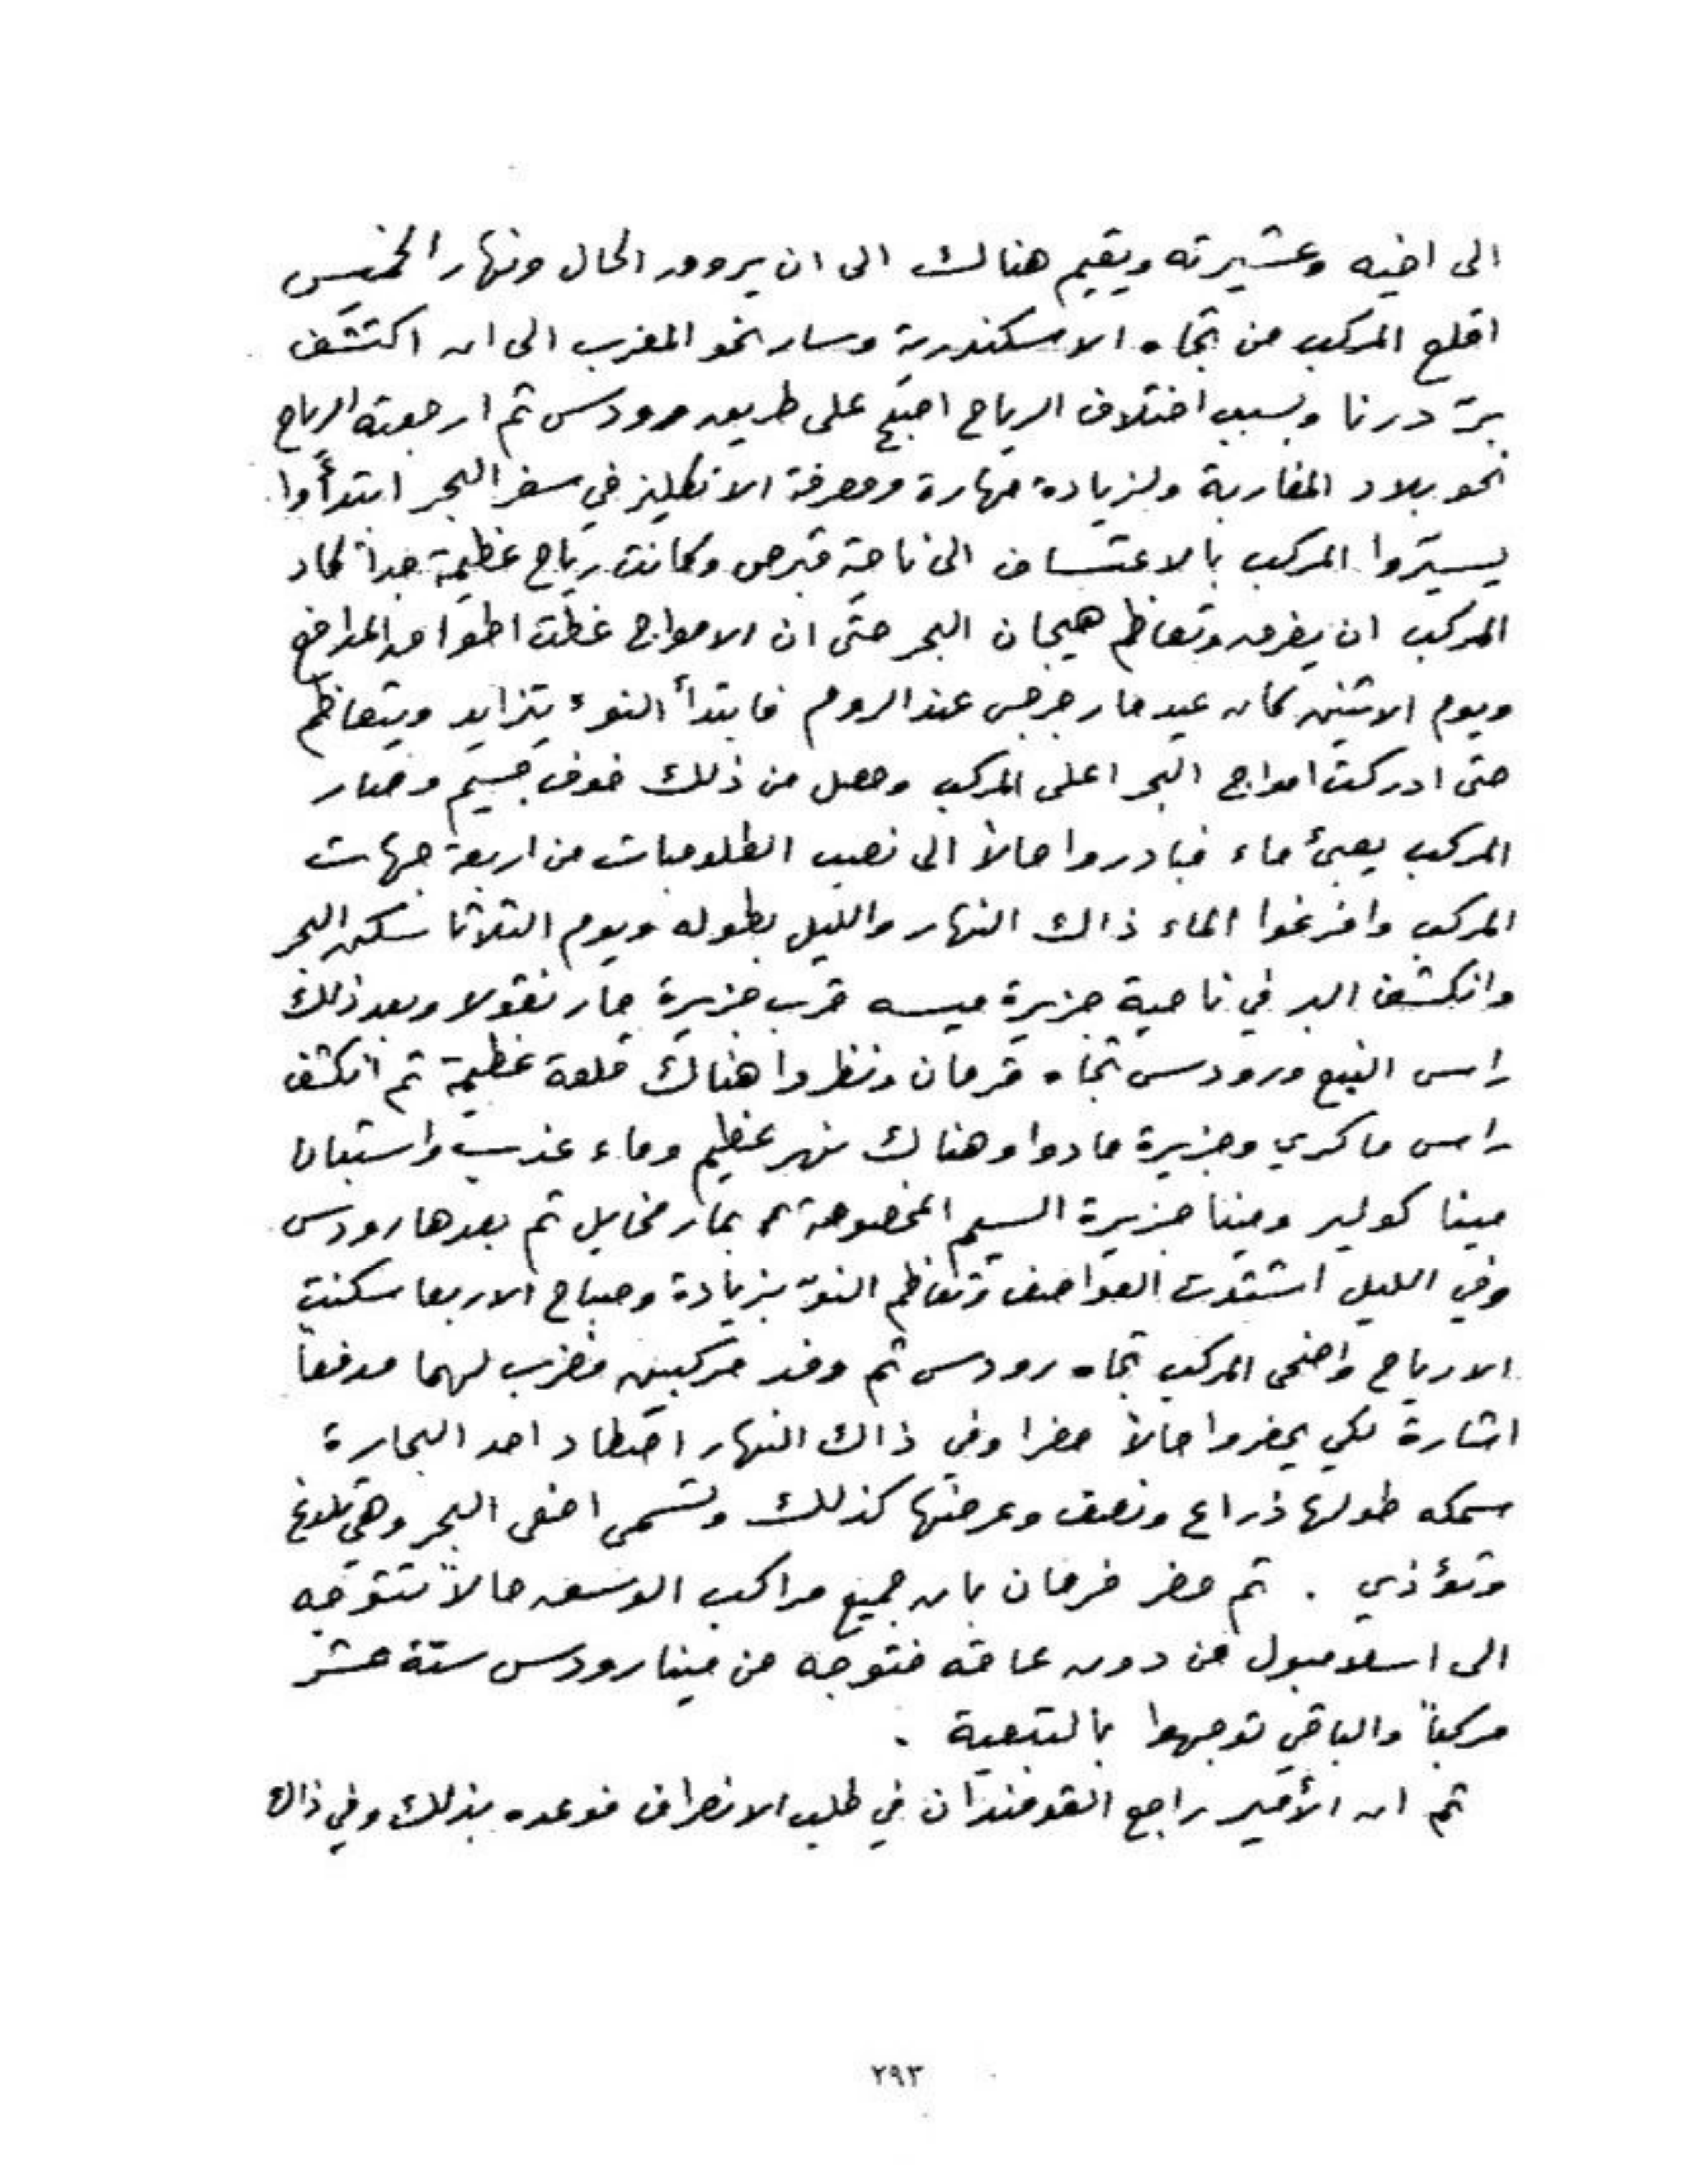 الى اخيه وعشيرته ويقيم هنالك الى ان يروق الحال ونهار الخميس
اقلع المركب من تجاه الاسكندرية وسار نحو المغرب الى ان اكتشف
برّ درنا وبسبب اختلاف الرياح اجتع على طريق رودس ثم ارجعته الرياح
نحو بلاد المغاربة ولزيادة مهارة ومعرفة الانكليز في سفر البحر ابتدأوا
يسيّروا المركب بالاعتساف الى ناحية قبرص وكانت رياح عظيمة جداً كاد
المركب ان يغرق وتعاظم هيجان البحر حتى ان الامواج غطت اطواق المدافع
ويوم الاثنين كان عيد مار جرجس عند الروم فابتدأ النوء يتزايد ويتعاظم
حتى ادركت امواج البحر اعلى المركب وحصل من ذلك خوف جسيم وصار
المركب يعبئ ماء فبادروا حالاً الى نصب الطلومبات من اربعة جهات
المركب وافرغوا الماء ذاك النهار والليل بطوله ويوم الثلاثا سكن البحر
وانكشف البر في ناحية جزيرة ميسه قرب جزيرة مار نقولا وبعد ذلك
راس النبع ورودس تجاه قرمان ونظروا هناك قلعة عظيمة ثم انكشف
راس ماكري وجزيرة مادوا وهناك نهر عظيم وماء عذب واستبانا
مينا كولير ومينا جزيرة السيم المخصوصة بمار مخايل ثم بعدها رودس
وفي الليل اشتدت العواصف وتعاظم النوّ بزيادة وصباح الاربعا سكنت
الارياح واضحى المركب تجاه رودس ثم وفد مركبين فضرب لهما مدفعاً
اشارة لكي يحضروا حالاً حضرا وفي ذاك النهار اصطاد احد البحارة
سمكه طولها ذراع ونصف وعرضها كذلك وتسمى افعى البحر وهي تلدغ
وتؤذي . ثم حضر فرمان بان جميع مراكب الوسق حالاً تتوجه
الى اسلامبول من دون عاقه فتوجه من مينا رودس ستة عشر
مركباً والباقي توجهوا بالتبعية .
ثم ان الأمير راجع القومندان في طلب الانصراف فوعده بذلك وفي ذاك
٢٩٣